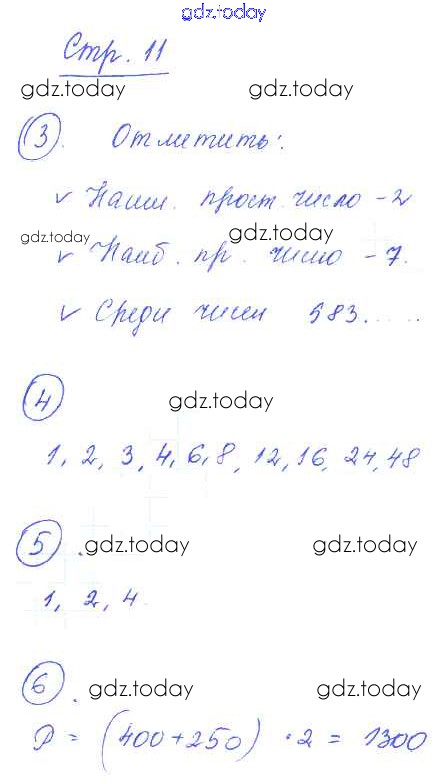 gdz.today
Стр. 11
gdz.today gdz.today
3. Отметить:
✓ Наим. прост. число - 2
gdz.today gdz.today
✓ Наиб. пр. число - 7.
✓ Среди чисел 583.....
4 gdz.today
1, 2, 3, 4, 6, 8, 12, 16, 24, 48
5. gdz.today gdz.today
1, 2, 4.
6. gdz.today gdz.today
P = (400+250) · 2 = 1300